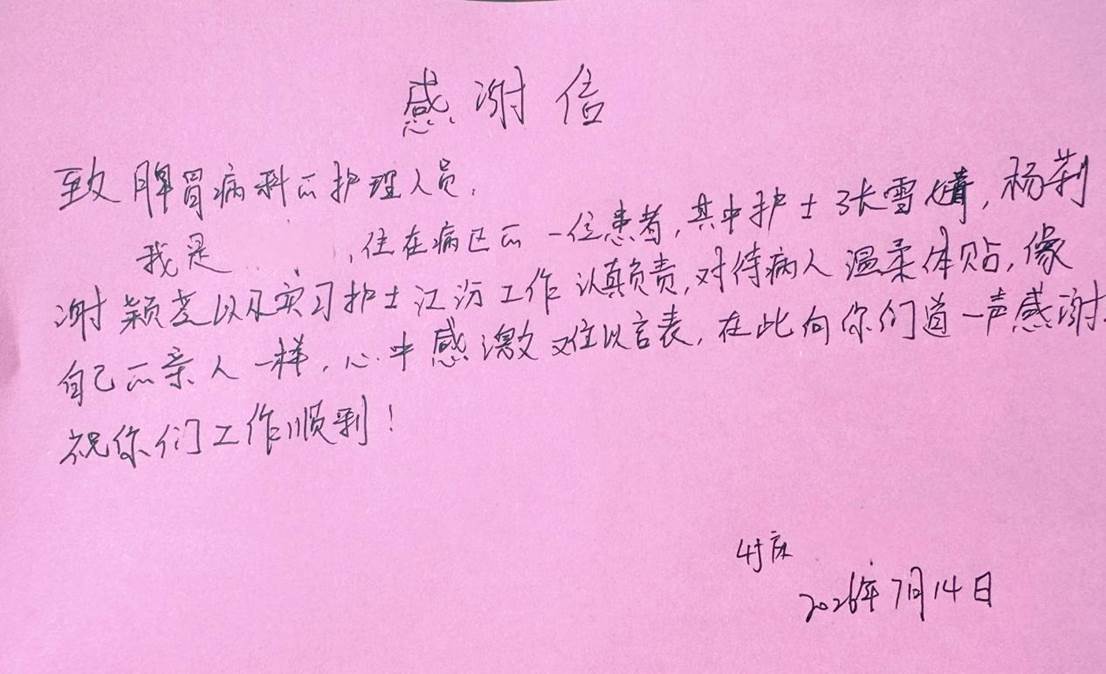 感谢信
致脾胃病科的护理人员,
我是 ,住在病区的一位患者,其中护士张雪婧,杨莉
谢颖芝以及实习护士江汾工作认真负责,对待病人温柔体贴,像
自己的亲人一样,心中感激难以言表,在此向你们道一声感谢.
祝你们工作顺利!
44床
2026年7月14日